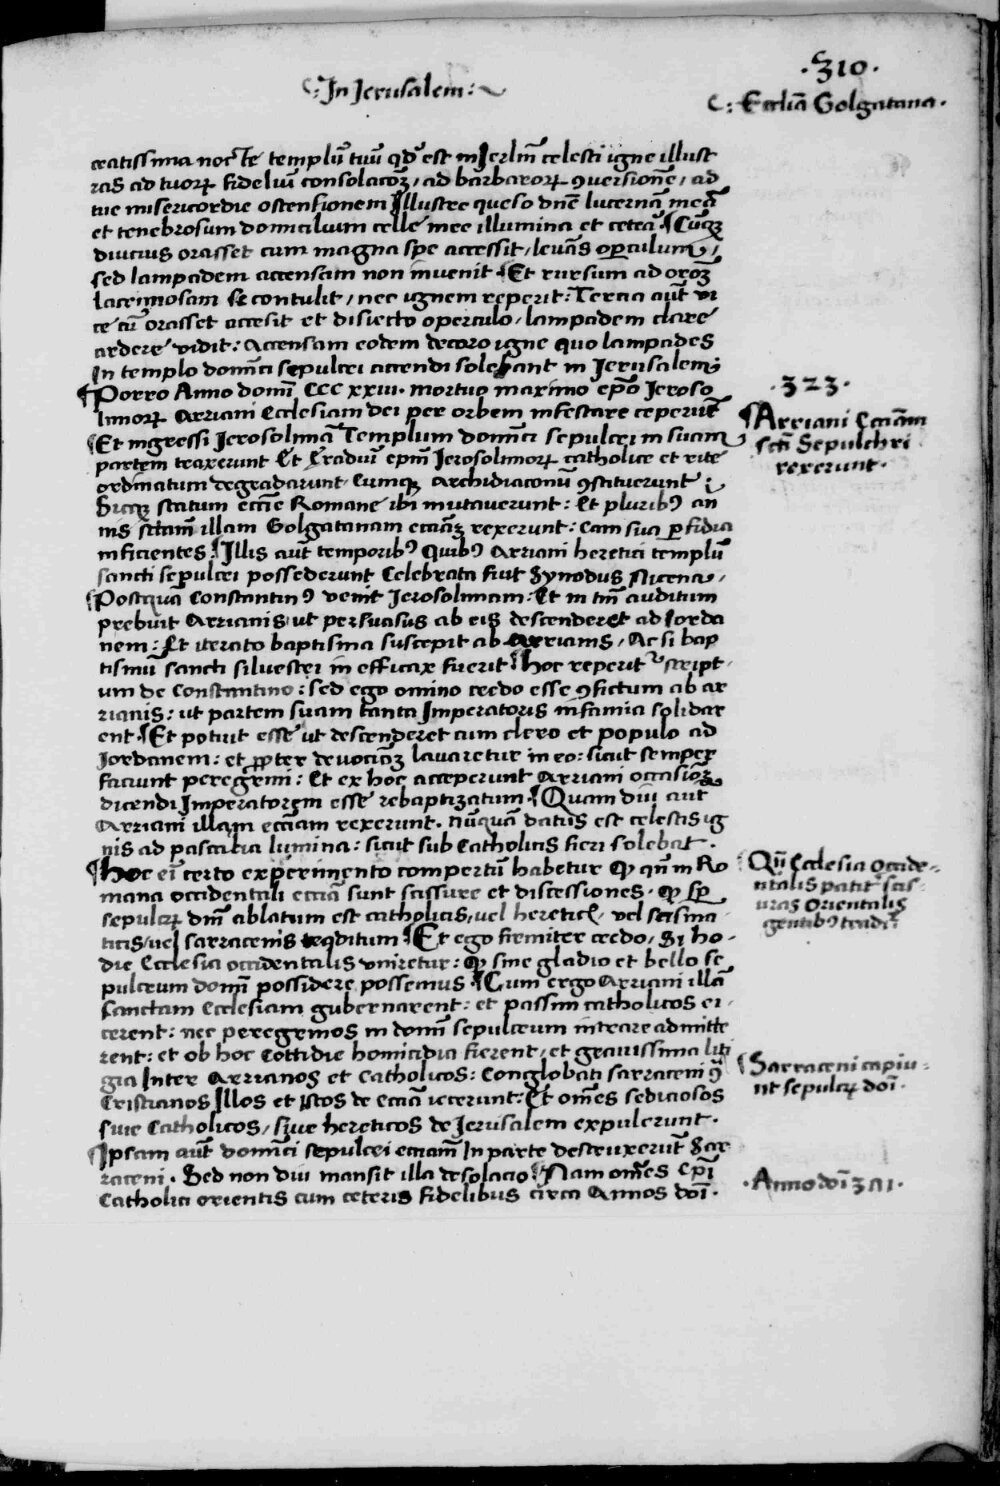 ·310·
In Jerusalem:
Eccliā Golgatana·
ceatissima nocte templū tuū qd est in Jerlm̄ celesti igne illust
ras ad tuorꝝ fideliū consolacoꝫ, ad barbarorꝝ ꝯversionē, ad
tue misericordie ostensionem Illustre queso dn̄e lucernā meā
et tenebrosum domicilium celle mee illumina et ceteā ¶ Cūqꝫ
diucius orasset cum magna spe accessit, levās operculum,
sed lampadem accensam non invenit ¶ Et rursum ad oroꝫ
lacrimosam se contulit, nec ignem reperit: Tercia aūt vi
ce cū orasset accesit et disiecto operculo, lampadem clare
ardere vidit: accensam eodem decoro igne quo lampades
In templo domīci sepulcri accendi solebant in Jerusalem;
¶ Porro Anno domī CCC xxiii· mortuo maximo ep̄o Jeroso
limorꝝ Arriani Ecclesiam dei per orbem infestare ceperūt
·323·
¶ Arriani Ecciām
sctī Sepulchri
rexerunt·
¶ Et ingressi Jerosolimā Templum domīci sepulcri in suam
partem traxerunt Et Eradiū ep̄m Jerosolimorꝝ catholice et rite
ordinatum degradarunt· Cumqꝫ Archidiaconū ꝯstituerunt ;
Sicqꝫ statum eccīe Romane ibi mutaverunt: Et pluribꝰ an
nis sctam̄ illam Golgatanam ecciāꝫ rexerunt: Eam sua perfidia
inficientes ¶ Illis aūt temporibꝰ Quibꝰ Arriani heretici templū
sancti sepulcri possederunt Celebrata fuit Synodus Nicena,
¶ Postquā Constantinꝰ venit Jerosolimam: Et in tm̄ auditum
prebuit Arrianis, ut persuasus ab eis descenderet ad Jorda
nem: Et iterato baptisma suscepit ab Arrianis, Ac si bap
tismū sancti Silvestri in efficax fuerit ¶ Hoc reperit' script
um de Constantino: sed ego omino credo esse ꝯfictum ab ar
rianis: ut partem suam tanta Imperatoris infamia solidar
ent ¶ Et potuit esse ut descenderet cum clero et populo ad
Jordanem: et ꝓpter devocioꝫ lavaretur in eo: sicut semper
faciunt peregrini: Et ex hoc acceperunt Arriani occasioꝫ
dicendi Imperatorem esse rebaptizatum ¶ Quam diu aūt
Arriani illam ecciam rexerunt· nūquā datus est celestis ig
nis ad pascalia lumina: sicut sub Catholicis fieri solebat·
¶ Hoc eī certo experimento compertū habetur ꝙ qn̄ in Ro
mana occidentali ecciā sunt scissure et discessiones· ꝙ sꝑ
sepulcꝝ dn̄i ablatum est catholicis, vel heretic̄, vel scisma
ticis, vel sarracenis traditum ¶ Et ego firmiter credo, Si ho-
die Ecclesia occidentalis uniretur: ꝙ sine gladio et bello se
pulcrum domī possidere possemus ¶ Cum ergo Arriani illā
Sanctam Ecclesiam gubernarent: et passim catholicos ei-
cerent: nec peregrinos in domī sepulcrum intrare admitte
rent: et ob hoc Cottidie homicidia fierent, et gravissima liti
gia Inter Arrianos et Catholicos: Conglobati sarraceni ꝯ
Cristianos Illos et istos de ecciā iecerunt: Et omēs sediciosos
sive Catholicos, sive hereticos de Jerusalem expulerunt·
¶ Ipsam aūt domīci sepulcri ecciam In parte destruxerūt Sar
raceni· Sed non diu mansit illa desolacio ¶ Nam omēs Ep̄i
Catholici orientis cum ceteris fidelibus circa Annos doī·
¶ Qn̄ Ecclesia occide-
ntalis patit' scis-
uras Orientalis
gentibꝰ tradit'
¶ Sarraceni capiu-
nt sepulcꝝ doī·
·Anno doī 3Λ1·